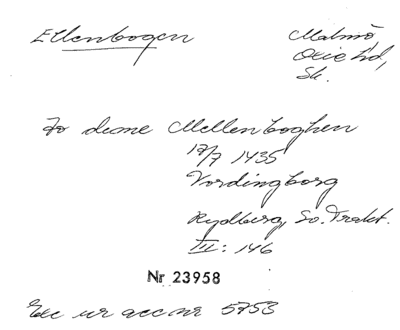 Ellenbogen
Malmö,
Oxie hd,
Sk.
Jo depne Mellenboghen
17/7 1435
Vordingborg
Rydberg, Sv. Trakt.
III: 146
Nr 23958
Exc ur acc nr 5753